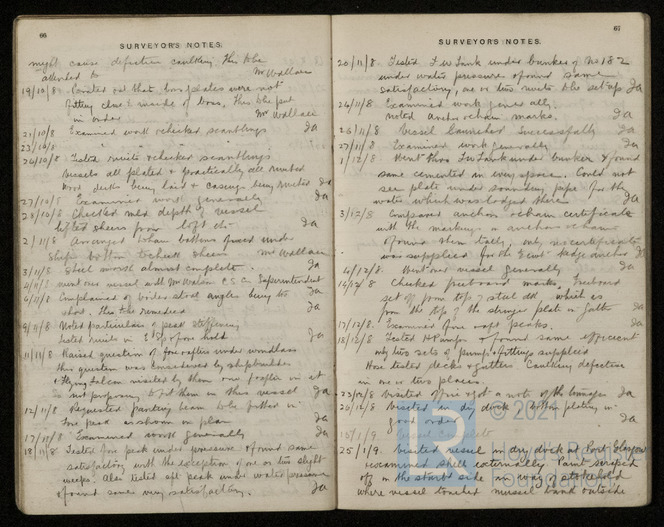 66
SURVEYOR'S NOTES.
might cause defective caulking. This to be
attended to Mr Wallace
19/10/8 Pointed out that boss plates were not
fitting close to inside of boss. This to be put
in order Mr Wallace
21/10/8 Examined work & checked scantlings Ja
23/10/8 " " "
26/10/8 Tested rivets & checked scantlings
Vessels all plated & practically all riveted
Wood decks being laid & casings being riveted Ja
27/10/8 Examined work generally Ja
28/10/8 Checked mld depth of vessel
lifted sheers from loft Ja
2/11/8 Arranged to have battens fixed under
ship's bottom to check sheers Mr Wallace
3/11/8 Shell work almost complete Ja
4/11/8 Went over vessel with Mr Watson Superintendent
6/11/8 Complained of angles being too
short. This to be remedied Ja
9/11/8 Noted particulars of peak stiffening
Tested rivets in of fore hold Ja
11/11/8 Raised question of fore rafters under windlass
this question was considered by shipbuilders
not purposing to put them in this vessel Ja
12/11/8 Requested panting beam to be put in
fore peak as shown on plan Ja
17/11/8 Examined work generally Ja
18/11/8 Tested fore peak under pressure & found same
satisfactory with the exception of one or two slight
weeps. Also tested aft peak under water pressure
& found same very satisfactory. Ja
67
SURVEYOR'S NOTES.
20/11/8 Tested F.W. Tank under bunker of No 182
under water pressure & found same
satisfactory, one or two rivets to be set up Ja
24/11/8 Examined work generally.
noted anchor & chain marks. Ja
26/11/8 Vessel launched successfully Ja
27/11/8 Examined work generally Ja
1/12/8 Went thro F.W. Tank under bunker & found
same cemented in every space. Could not
see plate under sounding pipe for the
water which was lodged there Ja
3/12/8 Compared anchor & chain certificate
with the marking on anchors & chains
& found them tally, only no certificate
was supplied for the kedge anchor Ja
4/12/8 Went over vessel generally Ja
14/12/8 Checked freeboard marks, freeboard
set off from top of steel dk which is
from the top of the stringer plate in gutter Ja
17/12/8 Examined fore & aft peaks. Ja
18/12/8 Tested H Pumps & found same efficient
only two sets of pumps & fittings supplied
Hose tested decks & gutters Caulking defective
in one or two places.
23/12/8 Visited & got a note of the tonnage Ja
26/12/8 Visited in dry dock & bottom plating in
good order Ja
15/1/9 Vessel Complete
25/1/9. Visited vessel in dry dock at Port Glasgow
& examined shell externally. Paint scraped
off on the starbd side in way of stokehold
where vessel touched mussel bank outside
© 2021
Lloyd's Register
Foundation